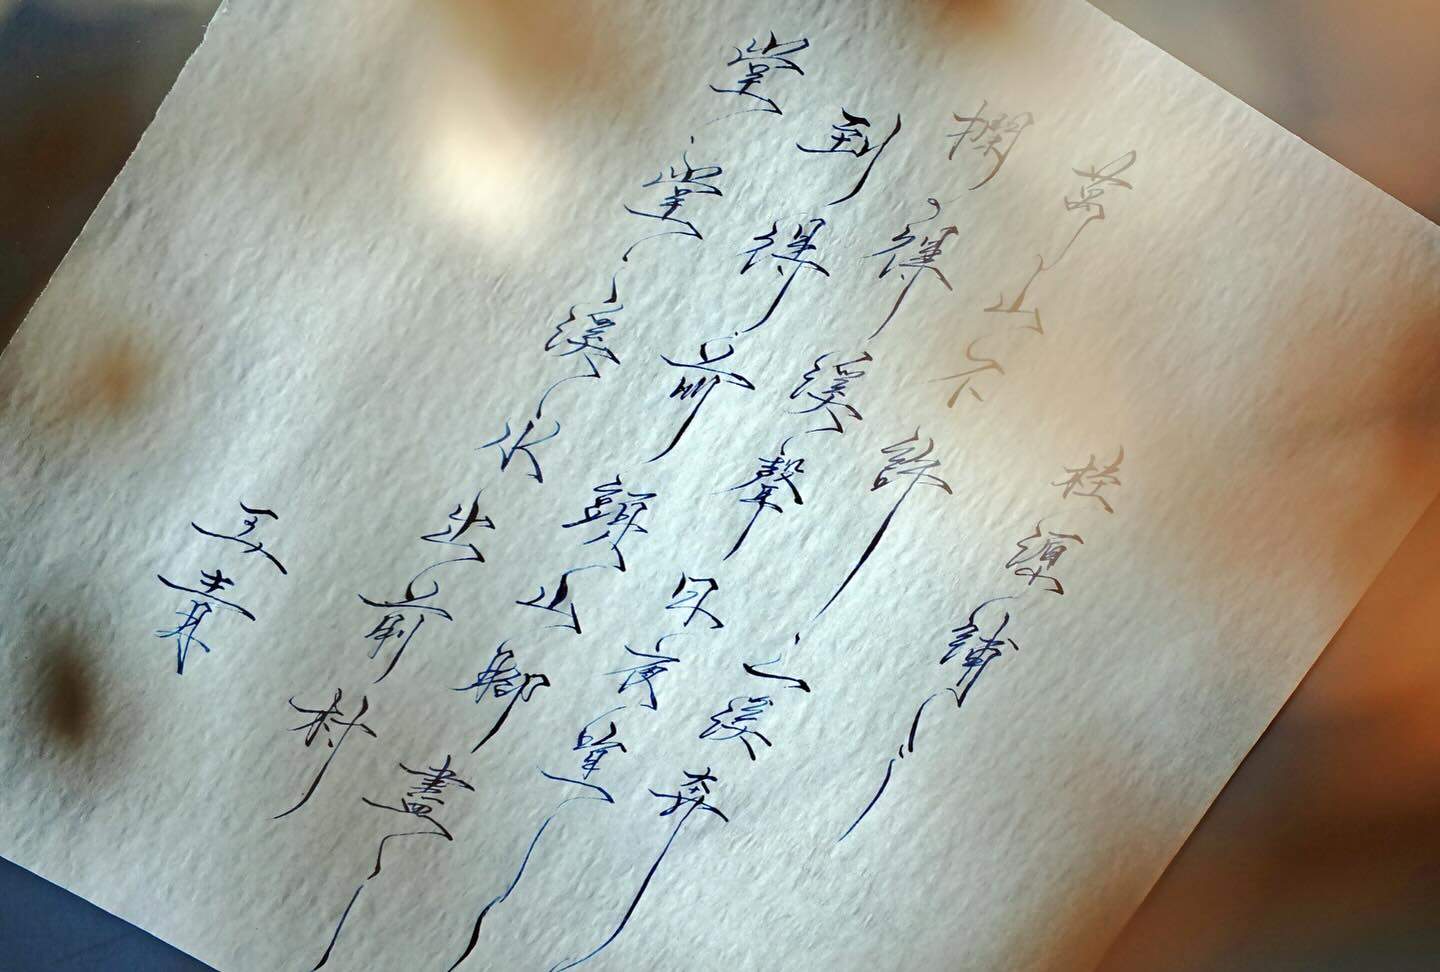 桂源鋪
萬山不許一溪奔
攔得溪聲日夜喧
到得前頭山腳盡
堂堂溪水出前村
玉青